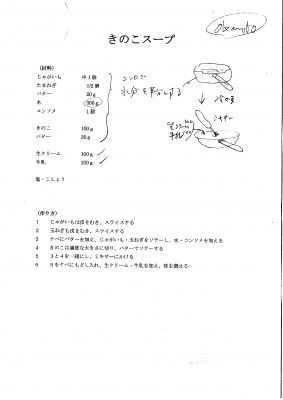 きのこスープ
okamoto
(材料)
じゃがいも 中1個
たまねぎ 1/2個
バター 20g
水 300g
コンソメ 1個
きのこ 100g
バター 30g
生クリーム 100g
牛乳 100g
塩・こしょう
コンロで
水分を
ミキサー
生クリーム 100
牛乳 100
(作り方)
1 じゃがいもは皮をむき、スライスする
2 玉ねぎも皮をむき、スライスする
3 ナベにバターを加え、じゃがいも・玉ねぎをソテーし、水・コンソメを加える
4 きのこは適度な大きさに切り、バターでソテーする
5 3と4を一緒にし、ミキサーにかける
6 5をナベにもどし入れ、生クリーム・牛乳を加え、味を調える